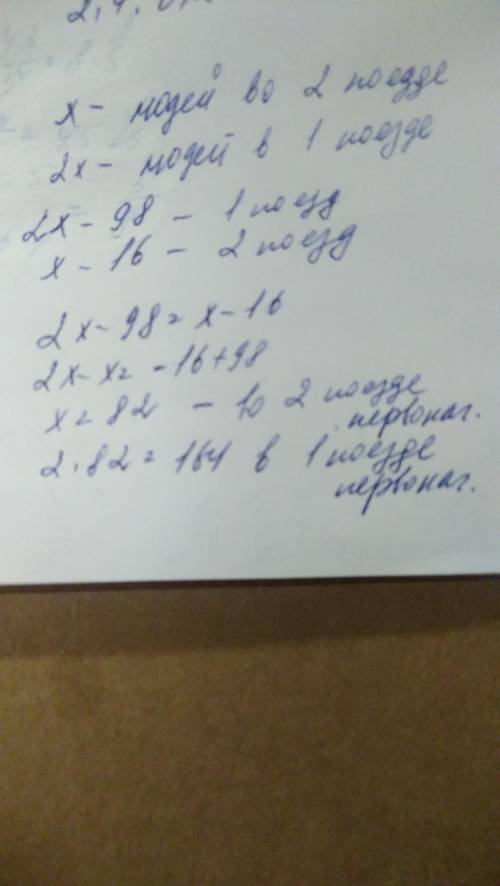 2.4.
x - людей во 2 поезде
2x - людей в 1 поезде
2x - 98 - 1 поезд
x - 16 - 2 поезд
2x - 98 = x - 16
2x - x = - 16 + 98
x = 82 - 2 поезде
первонач.
2 · 82 = 164 в 1 поезде
первонач.